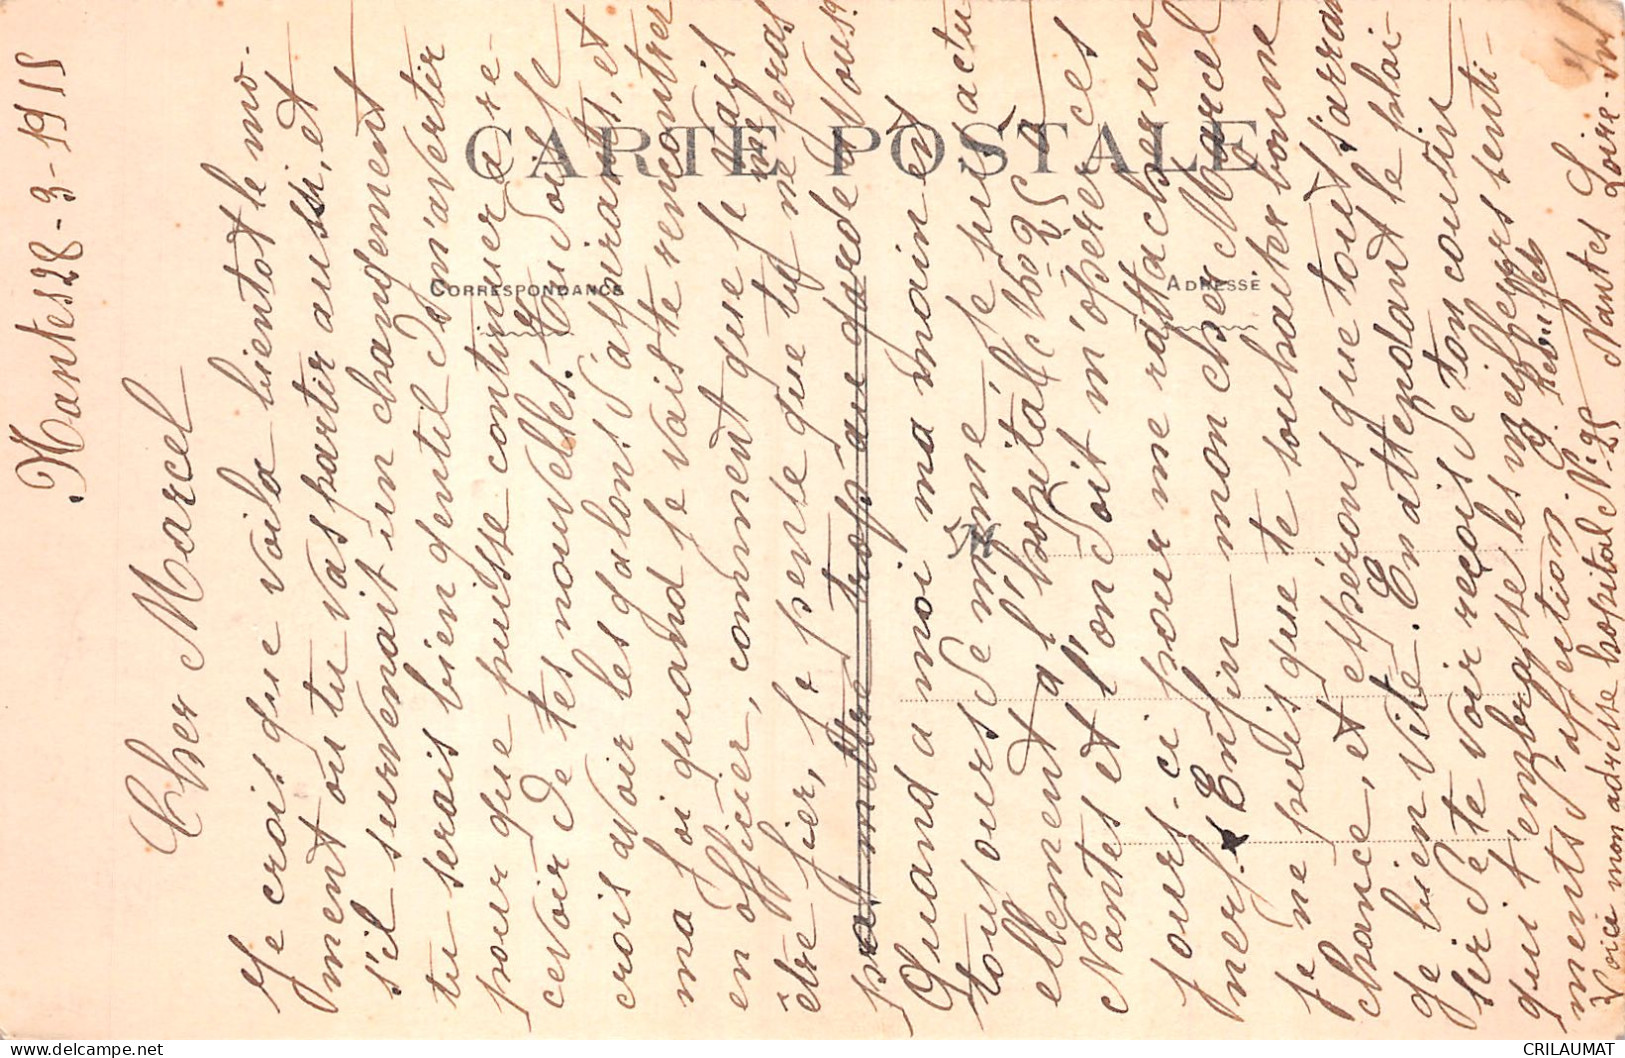 Nantes 28-3-1915
Cher Marcel
Je crois que voila bientot le mo-
ment ou tu vas partir aussi, et
s'il survenait un changement
tu serais bien gentil de m'avertir
pour que puisse continuer a re-
cevoir de tes nouvelles. Tu dois je
crois avoir les galons d'aspirants, et
ma foi quand je vais te rencontrer
en officier, comment que je vais
être fier, je pense que tu me feras
pas mettre trop au garde a Vous?
Quand a moi ma main est
toujours de même je suis actu
ellement a l'hopital No 25
Nantes et l'on doit m'operer ces
jours-ci pour me rattacher un
nerf. Enfin mon cher Marcel
je ne puis que te souhaiter bonne
chance, et espérons que tout s'arran
ge bien vite. En attendant le plai-
sir de te voir reçois de ton cousin
qui t'embrasse les meilleurs senti-
ments d'affection. G. Rebuffet
Voici mon adresse hopital No 25 Nantes Loire-Inf
CARTE POSTALE
CORRESPONDANCE
ADRESSE
CRILAUMAT